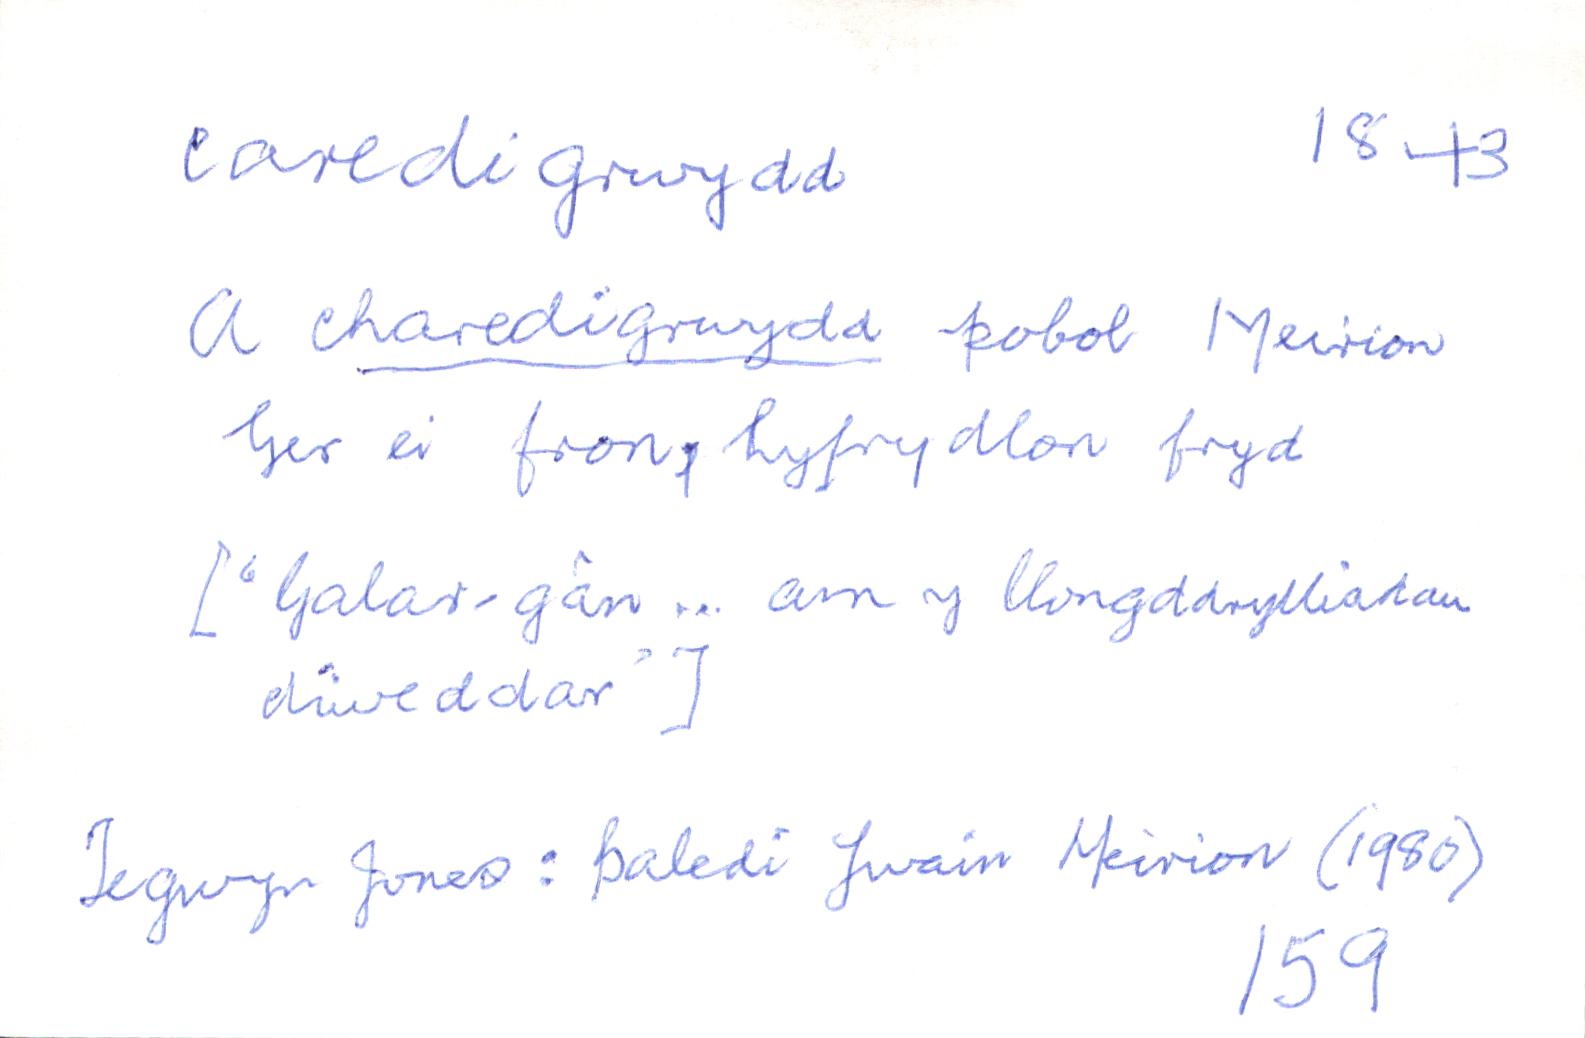 caredigrwydd 1843
A charedigrwydd pobol Meirion
Ger ei fron, hyfrydlon fryd
['Galar-gân ... am y llongddrylliadau
diweddar']
Tegwyn Jones: Baledi Ywain Meirion (1980)
159